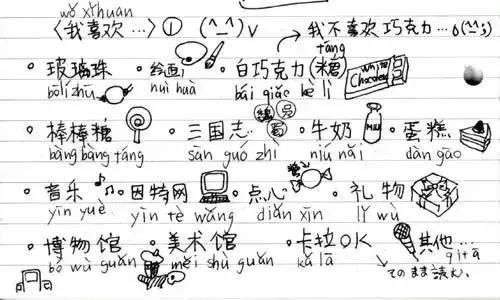 wǒ xǐhuan
〈我喜欢…〉① (^_^)v → 我不喜欢巧克力…6(^-^;)
táng
• 玻璃珠 • 绘画 • 白巧克力(糖) White Chocolate
bōlí zhū huì huà bái qiǎo kè lì
魏 吴 蜀
• 棒棒糖 • 三国志 • 牛奶 MILK • 蛋糕
bàng bàng táng sān guó zhì niú nǎi dàn gāo
• 音乐♪♫ • 因特网 • 点心 • 礼物
yīn yuè yīn tè wǎng diǎn xīn lǐ wù
• 博物馆 • 美术馆 • 卡拉OK 其他…
bó wù guǎn měi shù guǎn kǎ lā qí tā